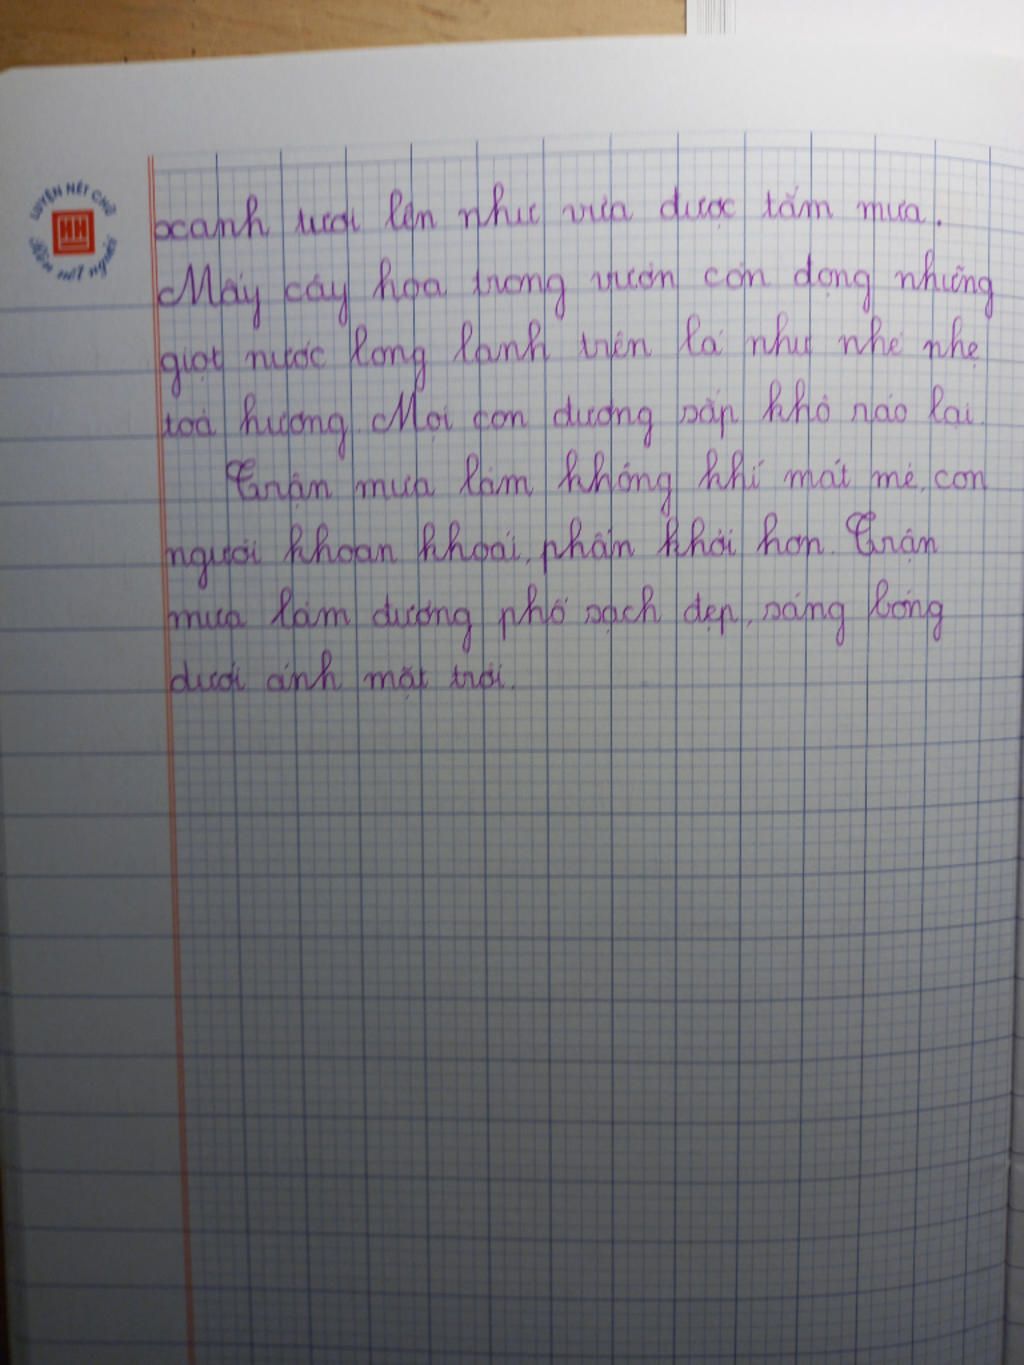 LUYỆN NÉT CHỮ
HH
Rèn nết người
xanh tươi lên như vừa được tắm mưa.
Mấy cây hoa trong vườn còn đọng những
giọt nước long lanh trên lá như nhè nhẹ
toả hương. Mọi con đường sắp khô ráo lại.
Trận mưa làm không khí mát mẻ, con
người khoan khoái, phấn khởi hơn. Trận
mưa làm đường phố sạch đẹp, sáng bóng
dưới ánh mặt trời.